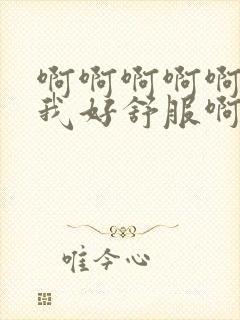 啊啊啊啊啊
我好舒服啊
唯今心